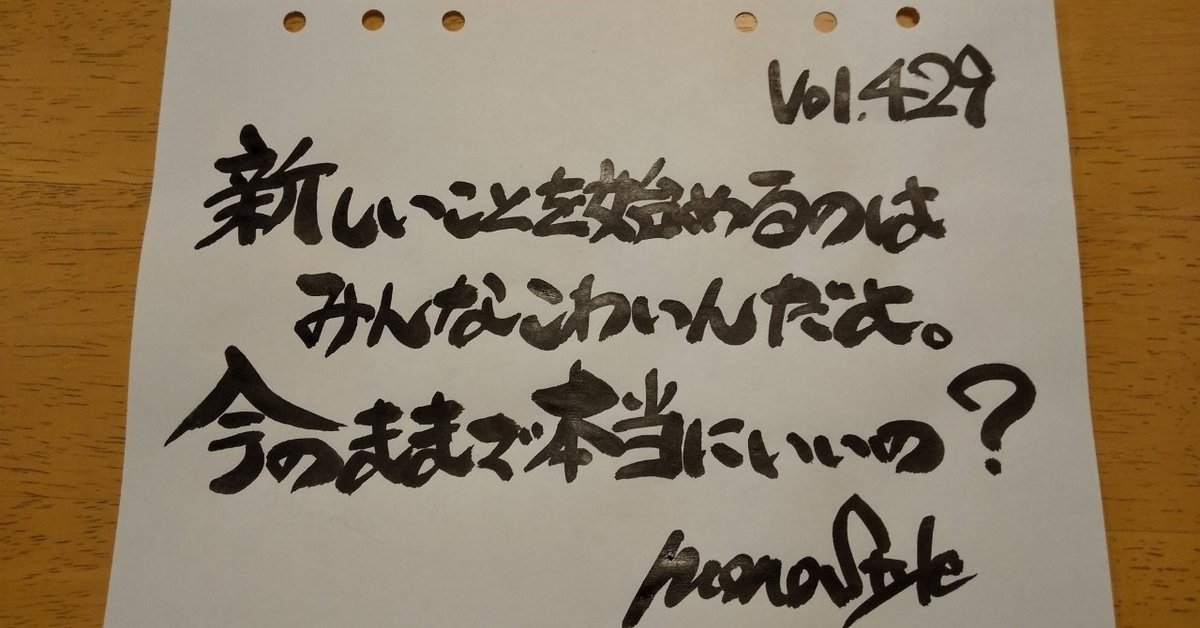 Vol.429
新しいことを始めるのは
みんなこわいんだよ。
今のままで本当にいいの?
monoStyle